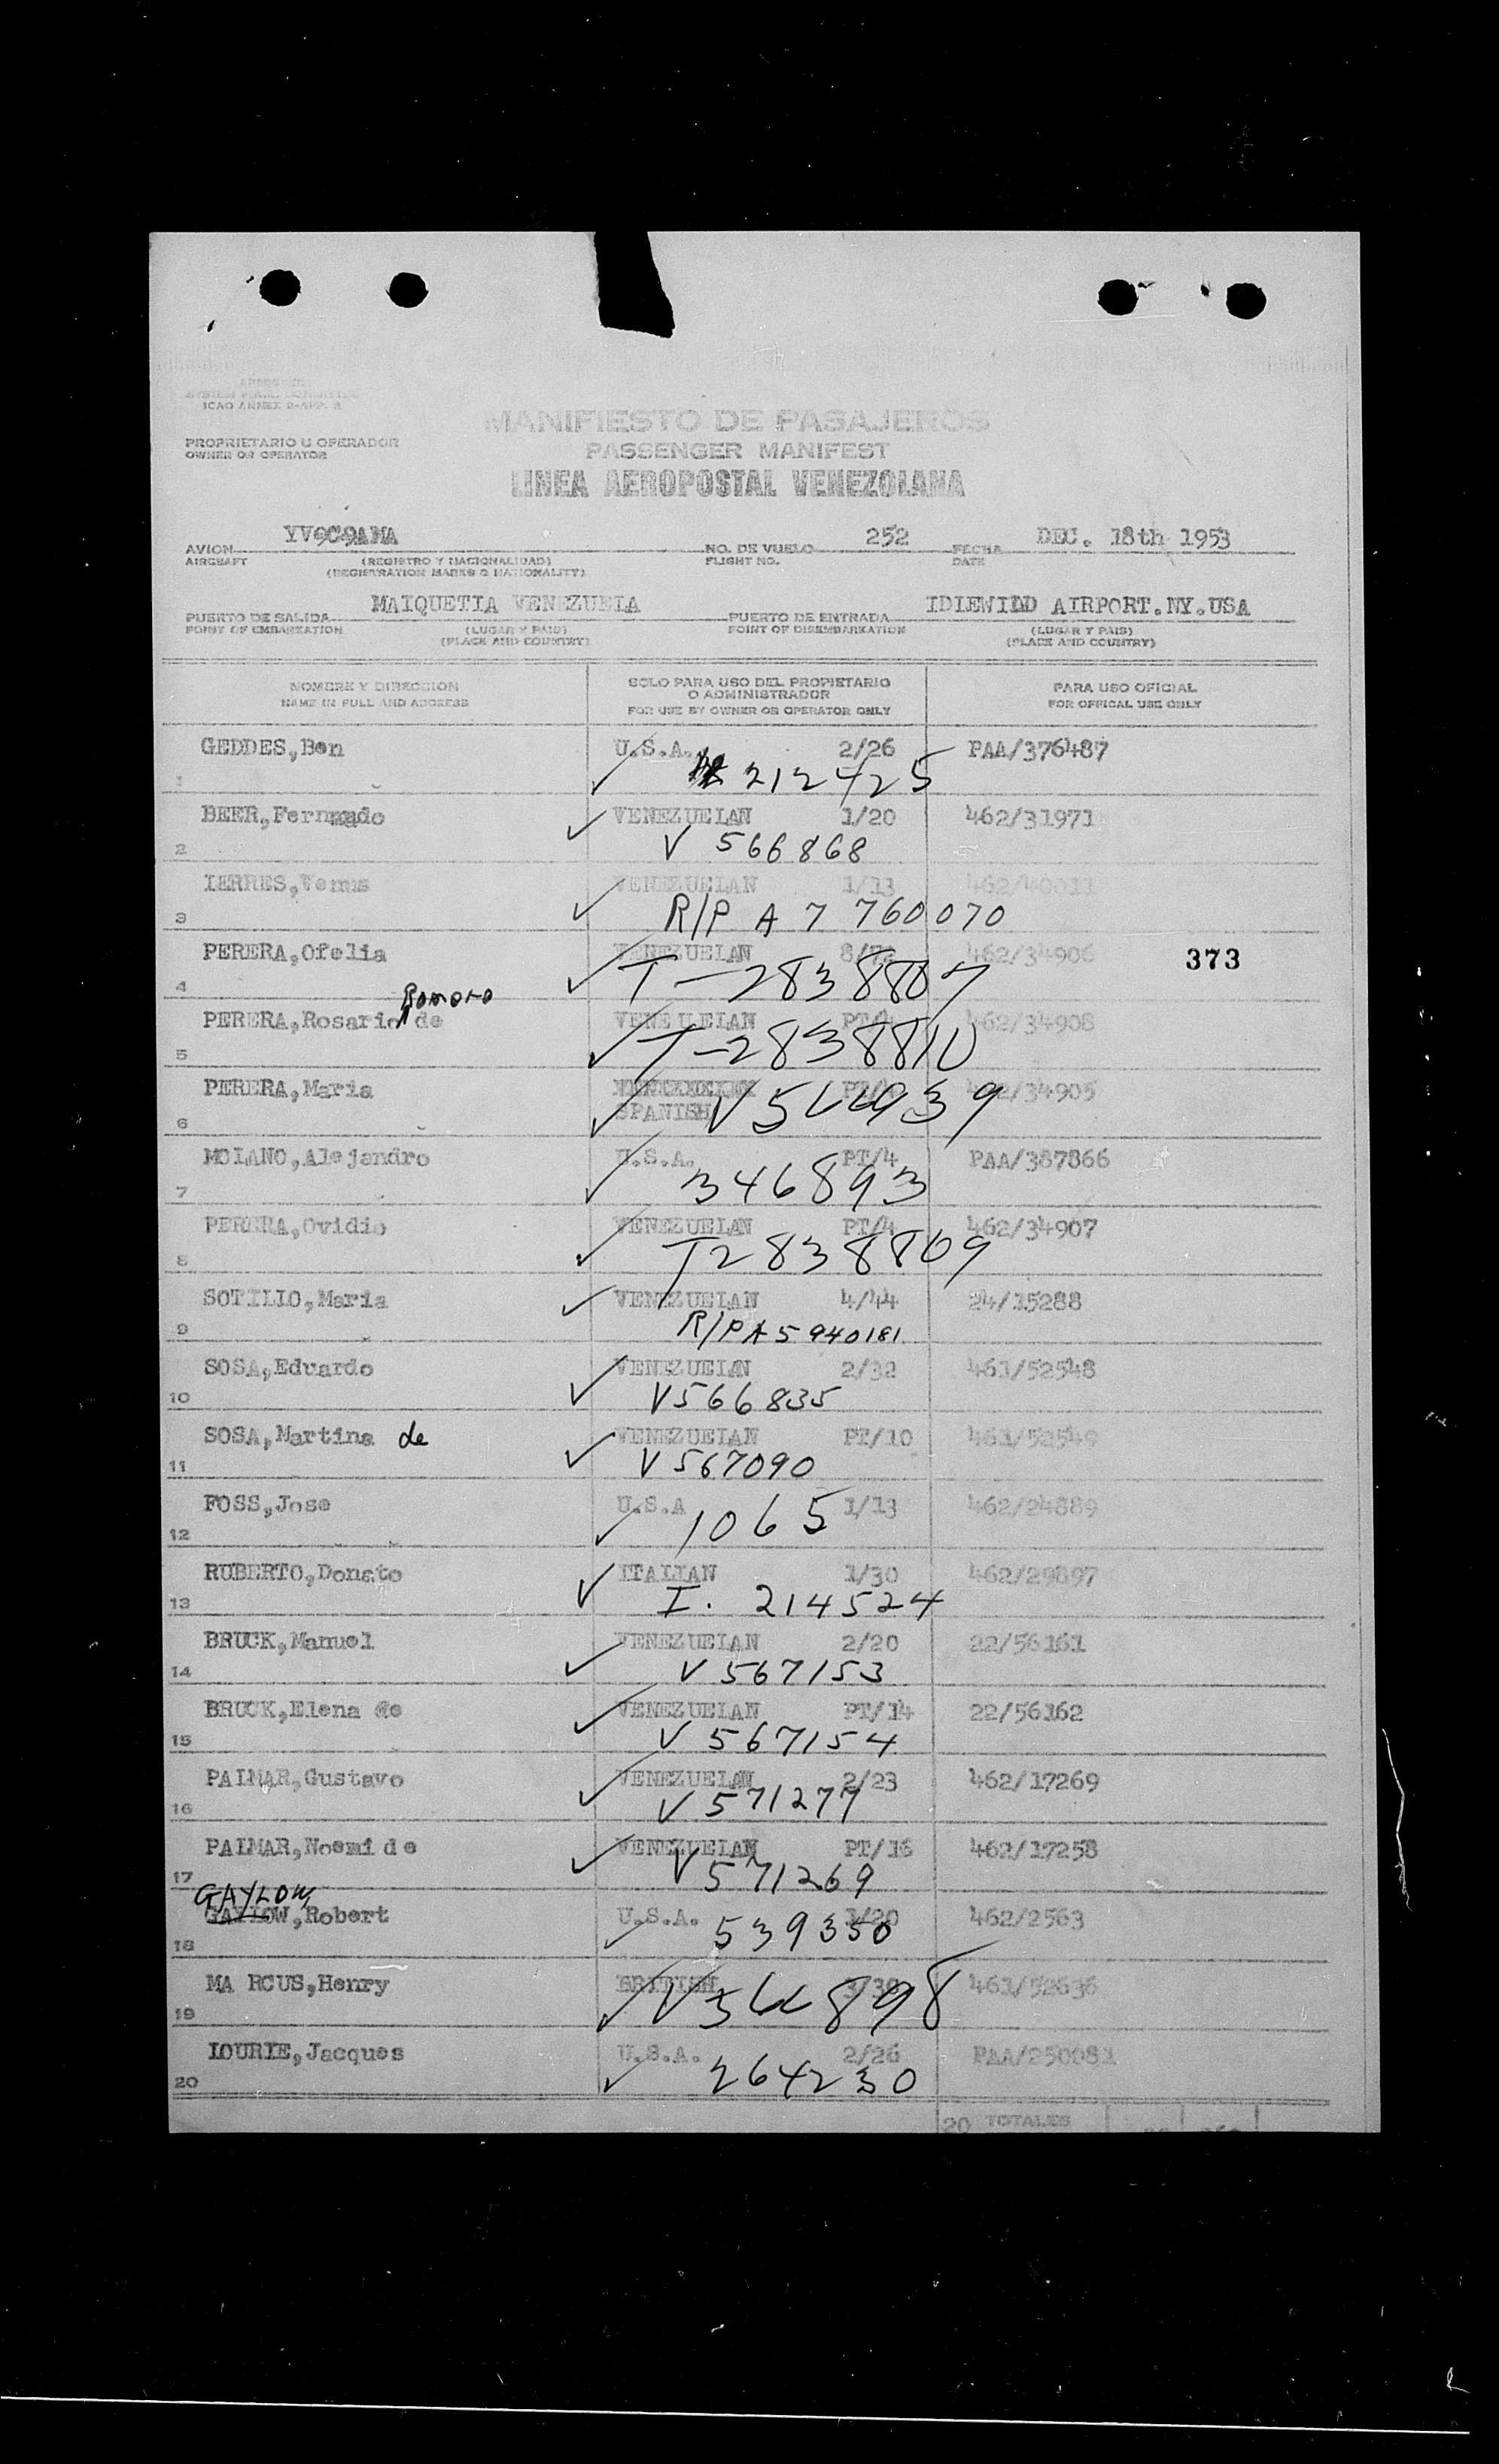 ICAO ANNEX 9-APP. 8
MANIFIESTO DE PASAJEROS
PROPRIETARIO U OPERADOR
OWNER OR OPERATOR
PASSENGER MANIFEST
LINEA AEROPOSTAL VENEZOLANA
AVION
AIRCRAFT
(REGISTRO Y NACIONALIDAD)
(REGISTRATION MARKS & NATIONALITY)
NO. DE VUELO 252
FLIGHT NO.
FECHA DEC. 18th 1953
DATE
PUERTO DE SALIDA MAIQUETIA VENEZUELA
POINT OF EMBARKATION
(LUGAR Y PAIS)
(PLACE AND COUNTRY)
PUERTO DE ENTRADA IDLEWILD AIRPORT.NY.USA
POINT OF DISEMBARKATION
(LUGAR Y PAIS)
(PLACE AND COUNTRY)
NOMBRE Y DIRECCION
NAME IN FULL AND ADDRESS
SOLO PARA USO DEL PROPIETARIO
O ADMINISTRADOR
FOR USE BY OWNER OR OPERATOR ONLY
PARA USO OFICIAL
FOR OFFICAL USE ONLY
GEDDES,Ben U.S.A. 2/26 PAA/376487
1 212425
BEER,Fernando VENEZUELAN 1/20 462/31971
2 V 566868
VENEZUELAN 1/13 462/40011
3 R/P A 7 760070
PERERA,Ofelia VENEZUELAN 462/34906 373
4 T-2838807
Romero
PERERA,Rosario de VENEZUELAN PT/4 462/34908
5 T-2838810
PERERA,Maria 462/34905
SPANISH V 566939
6
MOLANO,Alejandro U.S.A. PT/4 PAA/387866
7 346893
PERERA,Ovidio VENEZUELAN PT/4 462/34907
8 T2838809
SOTILLO,Maria VENEZUELAN 4/44 24/15288
9 R/P A5940181
SOSA,Eduardo VENEZUELAN 2/32 461/52548
10 V566835
SOSA,Martina de VENEZUELAN PT/10 461/52549
11 V567090
FOSS,Jose U.S.A 1/13 462/24889
12 1065
RUBERTO,Donato ITALIAN 1/30 462/29897
13 I. 214524
BRUCK,Manuel VENEZUELAN 2/20 22/56161
14 V 567153
BRUCK,Elena de VENEZUELAN PT/14 22/56162
15 V 567154
PALMAR,Gustavo VENEZUELAN 2/23 462/17269
16 V 571277
PALMAR,Noemi de VENEZUELAN PT/16 462/17258
17 V 571269
GAYLOW
GAILOW,Robert U.S.A. 1/20 462/2563
18 539350
MA RCUS,Henry BRITISH 3/30 461/52636
19 V 566898
LOURIE,Jacques U.S.A. 2/26 PAA/250081
20 264230
20 TOTALES